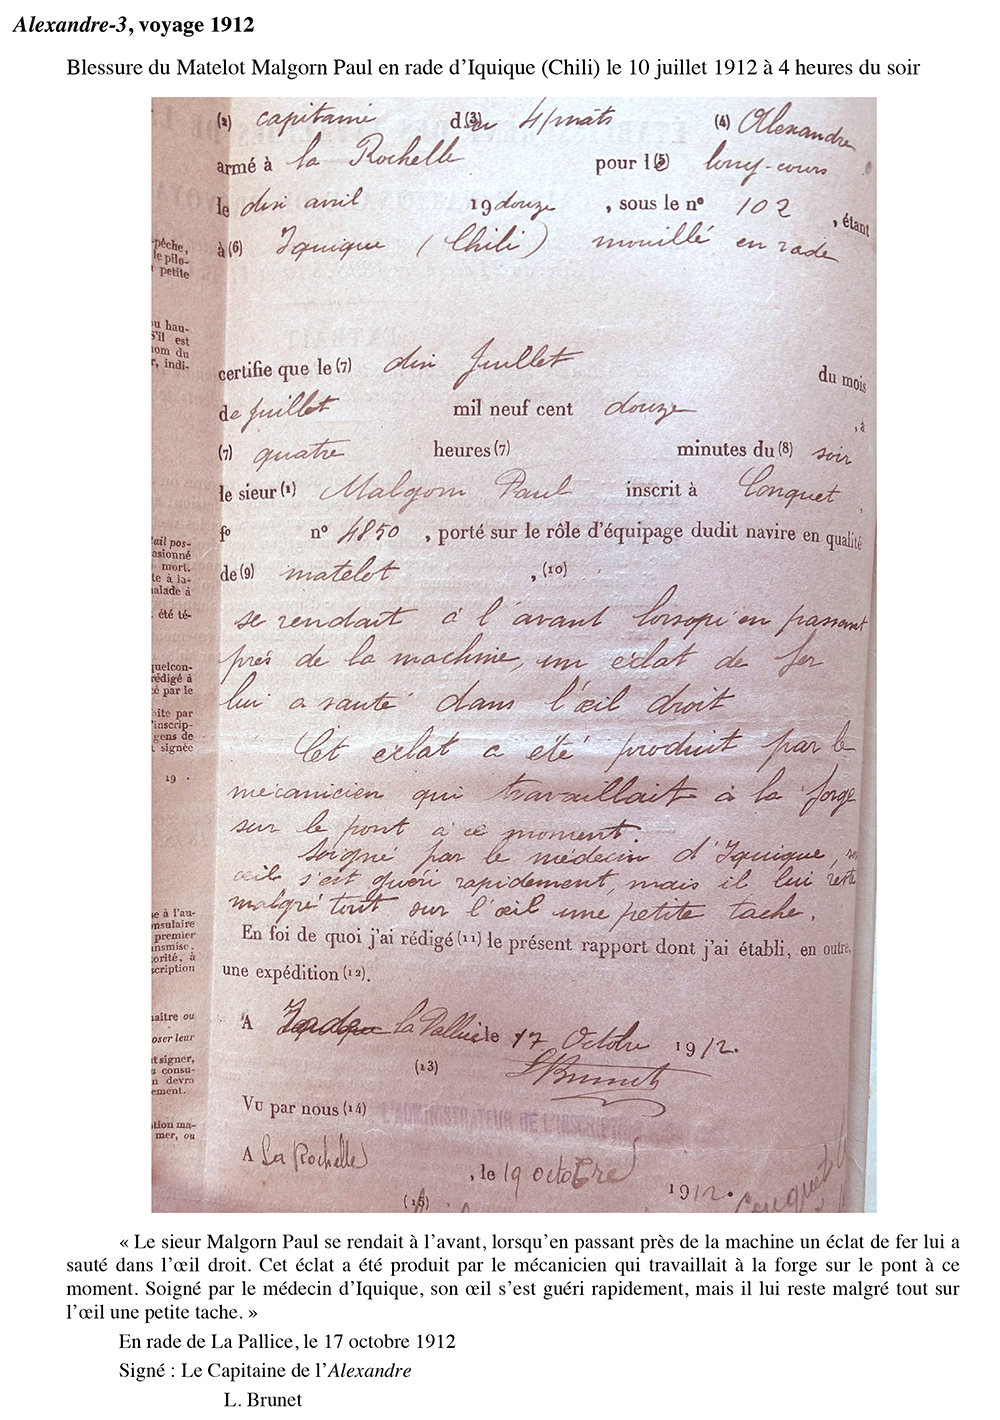 Alexandre-3, voyage 1912
Blessure du Matelot Malgorn Paul en rade d’Iquique (Chili) le 10 juillet 1912 à 4 heures du soir
(2) capitaine du (3) 4/mats (4) Alexandre
armé à la Rochelle pour l (5) long-cours
le dix avril 19douze, sous le n° 102, étant
à (6) Iquique (Chili) mouillé en rade
pêche,
le pilo-
petite
ou hau-
S'il est
nom du
r, indi-
certifie que le (7) dix Juillet du mois
de juillet mil neuf cent douze, à
(7) quatre heures (7) minutes du (8) soir
le sieur (1) Malgorn Paul inscrit à Conquet,
f° n° 4850, porté sur le rôle d'équipage dudit navire en qualité
de (9) matelot, (10)
ail pos-
asionné
mort.
te à la-
alade à
été té-
se rendait à l'avant lorsqu'en passant
près de la machine, un éclat de fer
lui a sauté dans l'œil droit
quelcon-
rédigé à
cé par le
oite par
'inscrip-
gens de
signée
19 .
Cet eclat a été produit par le
mecanicien qui travaillait à la forge
sur le pont à ce moment.
Soigné par le médecin d'Iquique,
œil s'est guéri rapidement, mais il lui reste
malgré tout sur l'œil une petite tache.
En foi de quoi j'ai rédigé (11) le présent rapport dont j'ai établi, en outre,
une expédition (12).
se à l'au-
nsulaire
premier
ansmise.
orité, à
scription
A la Pallice le 17 Octobre 1912.
(13)
L Brunet
naître ou
oser leur
t signer,
consu-
n devra
ement.
Vu par nous (14)
tion ma-
mer, ou
A La Rochelle, le 19 octobre 1912.
(15)
Conquet
« Le sieur Malgorn Paul se rendait à l’avant, lorsqu’en passant près de la machine un éclat de fer lui a
sauté dans l’œil droit. Cet éclat a été produit par le mécanicien qui travaillait à la forge sur le pont à ce
moment. Soigné par le médecin d’Iquique, son œil s’est guéri rapidement, mais il lui reste malgré tout sur
l’œil une petite tache. »
En rade de La Pallice, le 17 octobre 1912
Signé : Le Capitaine de l’Alexandre
L. Brunet